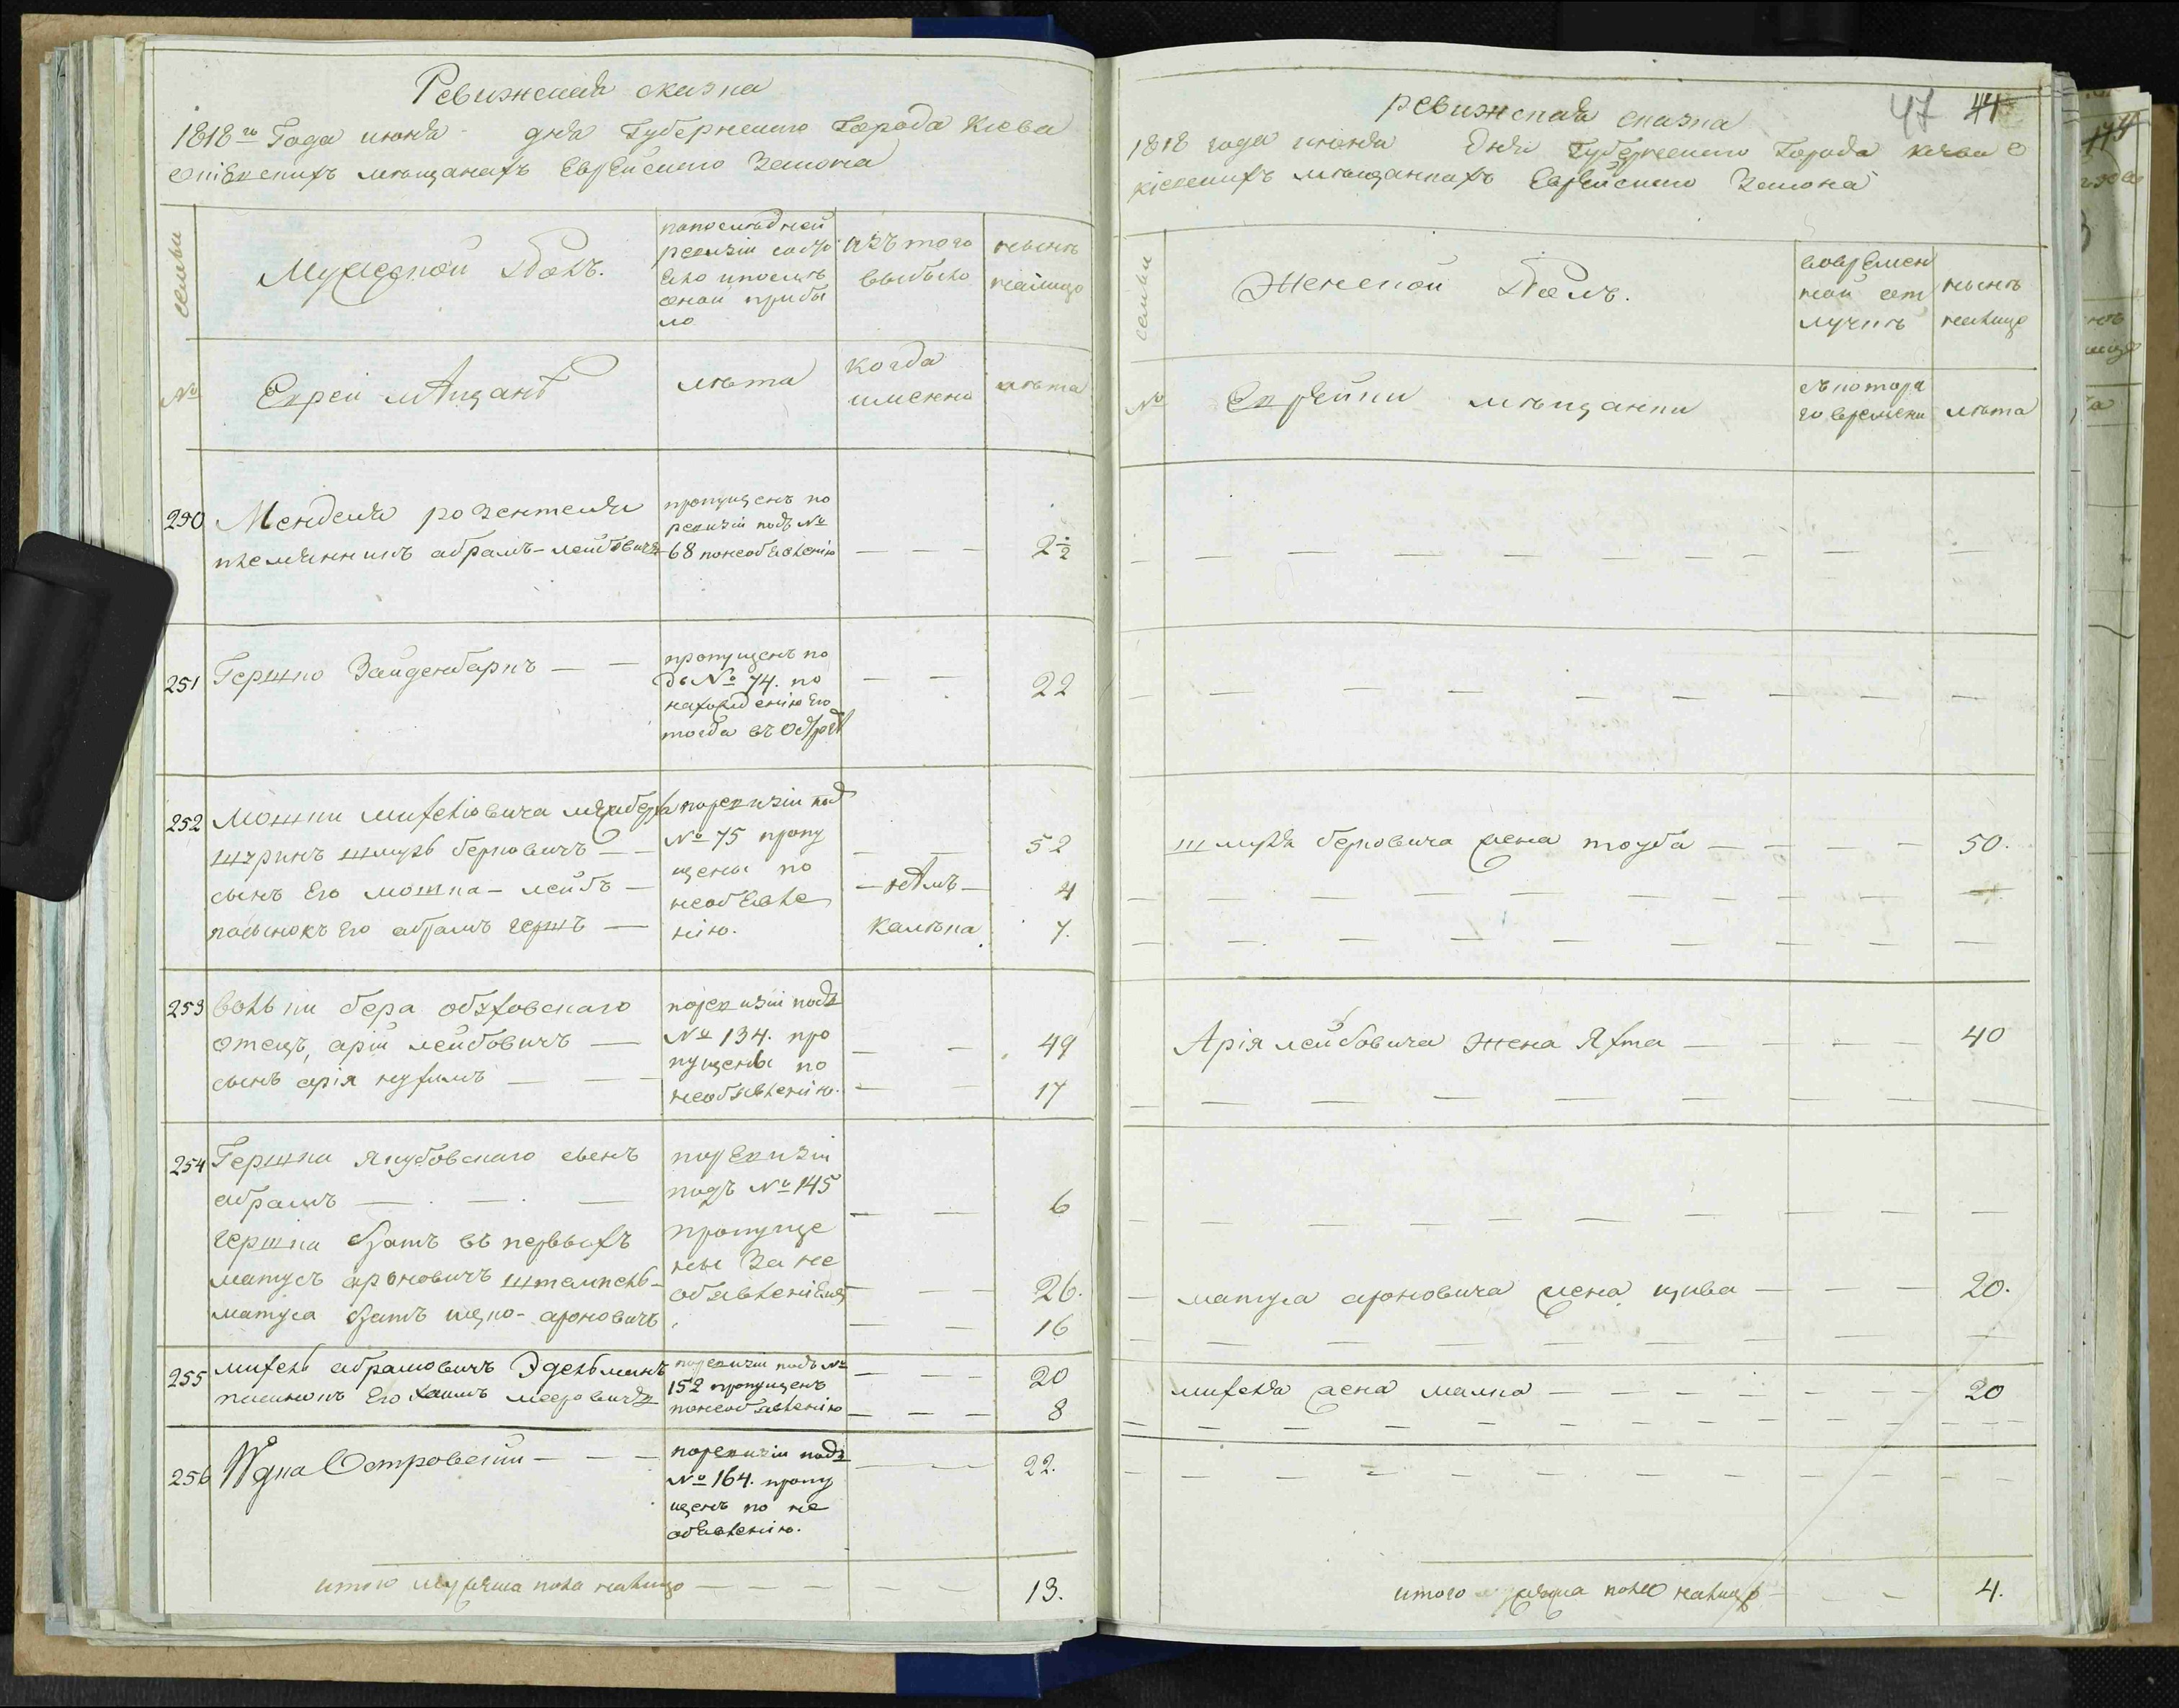 Ревижская сказка
1818го Года июня дня Губернского Города Киева
о кіевскихъ мѣщанахъ Еврейского Закона
семьи
Мужеской Полъ.
попоследней
ревизіи состо
яло ипослѣ
оной прибы
ло
изъ того
выбыло
нынѣ
налицо
№
Евреи мѣщанѣ
лѣта
когда
именно
лѣта
250
Менделя розентеля
племянникъ абрамъ-лейбовичъ
пропущенъ по
ревизіи подъ №
68 понеобявлению
— — —
2 1/2
251
Гершко Зайденбаркъ — —
пропущенъ по
дъ № 74. по
нахождению Его
тогда въ
— —
22
252
Мошки михелiовича
шмуль берковичъ — —
сынъ Его мошка-лейбъ —
пасынокъ Его абрамъ гершъ —
поревизіи под
№ 75 пропу
щены по
необъявле
нію.
— —
— нѣмъ —
калѣка.
52
4
7.
253
вольки бера обуховского
отецъ, арiй лейбовичъ —
сынъ арiя нухимъ — — —
поревизіи подъ
№ 134. про
пущены по
необявленiю.
— —
— —
49
17
254
Гершки якубовского сынъ
абрамъ — — —
гершка братъ въ первыхъ
матусъ ароновичъ штемпель-
матуса братъ ицко-ароновичъ
поревизiи
подъ № 145
пропуще
ны За не
— —
— —
— —
6
26.
16
255
михель абрамовичъ Эдельманъ
пасынокъ Его хаимъ мееровичъ
поревизіи подъ №
152 пропущенъ
понеобявленiю
— — —
— — —
20
8
256
Островский — — —
поревизiи подъ
№ 164. пропу
щенъ по не
объявленiю.
22.
итого мужеска пола налицо — — — —
13.
47 44
ревижская сказка
1818 года июня дня Губернского Города киева о
кiевскихъ мѣщанкахъ Еврейского Закона
семьи
Женской Полъ.
вовремен
ной от
лучкѣ
нынѣ
налицо
№
Еврейки мѣщанки
съ котора
го времени
лѣта
шмуля берковича жена тоуба — — — —
50.
Арія лейбовича жена Яхта — — — —
40
матуса ароновича жена цива — — —
20.
михеля жена малка — — — — — —
20
итого женска пола налицо — — —
4.